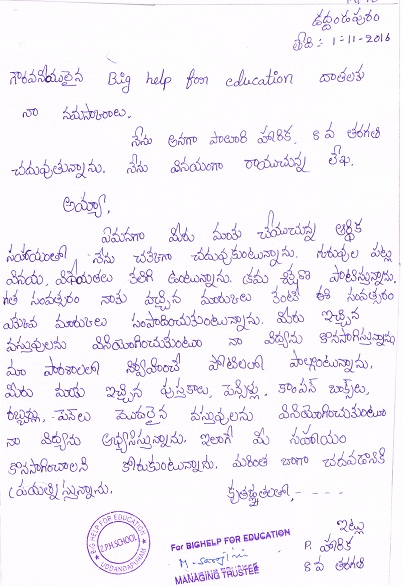 ఉద్దండపురం
తేది : 1-11-2016
గౌరవనీయులైన Big help for education దాతలకు
నా నమస్కారాలు.
నేను అనగా పాలూరి హారిక, 8 వ తరగతి
చదువుతున్నాను. నేను వినయంగా రాయుచున్న లేఖ.
అయ్యా,
ఏమనగా మీరు మాకు చేయుచున్న ఆర్థిక
సహాయంతో నేను చక్కగా చదువుకుంటున్నాను. గురువుల పట్ల
వినయ, విధేయతలు కలిగి ఉంటున్నాను. క్రమ శిక్షణ పాటిస్తున్నాను.
గత సంవత్సరం నాకు వచ్చిన మార్కులు కంటే ఈ సంవత్సరం
ఎక్కువ మార్కులు సంపాదించుకుంటున్నాను. మీరు ఇచ్చిన
వస్తువులను వినియోగించుకుంటూ నా విద్యను కొనసాగిస్తున్నాను
మా పాఠశాలలో నిర్వహించే పోటీలలో పాల్గొంటున్నాను.
మీరు మాకు ఇచ్చిన పుస్తకాలు, పెన్సిళ్లు, కాంపస్ బాక్స్‌లు,
రబ్బర్లు, పెన్‌లు మొదలైన వస్తువులను వినియోగించుకుంటూ
నా విద్యను అభ్యసిస్తున్నాను. ఇలాగే మీ సహాయం
కొనసాగించాలని కోరుకుంటున్నాను. మరింత బాగా చదవడానికి
ప్రయత్నిస్తున్నాను. కృతజ్ఞతలతో, - - - -
ఇట్లు
P. హారిక
8 వ తరగతి
BIGHELP FOR EDUCATION
Z.P.H.SCHOOL
UDDANDAPURAM
For BIGHELP FOR EDUCATION
MANAGING TRUSTEE